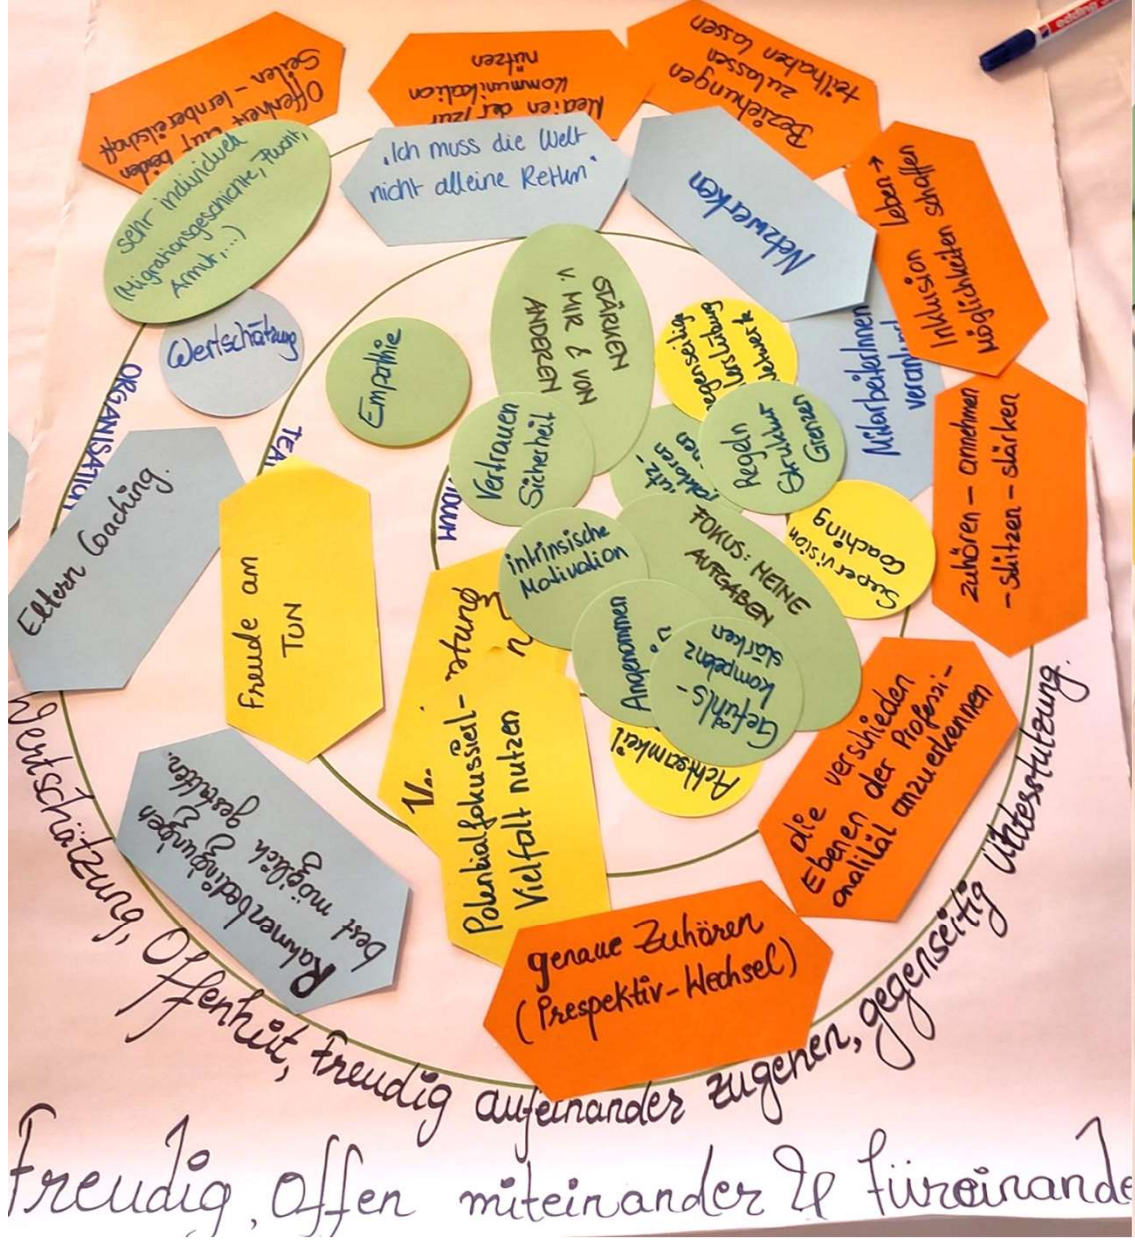 edding
Offenheit auf beiden
Seiten - lernbereitschaft
Medien der/zur
Kommunikation
nützen
Beziehungen
zulassen
teilhaben lassen
sehr individuell
(Migrationsgeschichte, Flucht,
Armut,...)
„Ich muss die Welt
nicht alleine Retten“
Netzwerken
Inklusion leben →
Möglichkeiten schaffen
Wertschätzung
Empathie
STÄRKEN
V. MIR & VON
ANDEREN
gegenseitige
Netzwerk
MitarbeiterInnen
ORGANISATION
TEA
Vertrauen
Sicherheit
Regeln
Struktur
Grenzen
zuhören - annehmen
- stützen - stärken
Eltern Coaching.
Freude am
TUN
IDUUM
intrinsische
Motivation
FOKUS: MEINE
AUFGABEN
Supervision
Coaching
Angenommen
Gefühls-
kompetenz
stärken
Achtsamkeit
Potentialfokussiert-
Vielfalt nutzen
die verschieden
Ebenen der Professi-
onalität anzuerkennen
Rahmenbedingungen
best möglich gestalten.
genaue Zuhören
(Prespektiv-Wechsel)
Wertschätzung, Offenheit, Freudig aufeinander zugehen, gegenseitig Unterstützung.
Freudig, Offen miteinander & füreinande